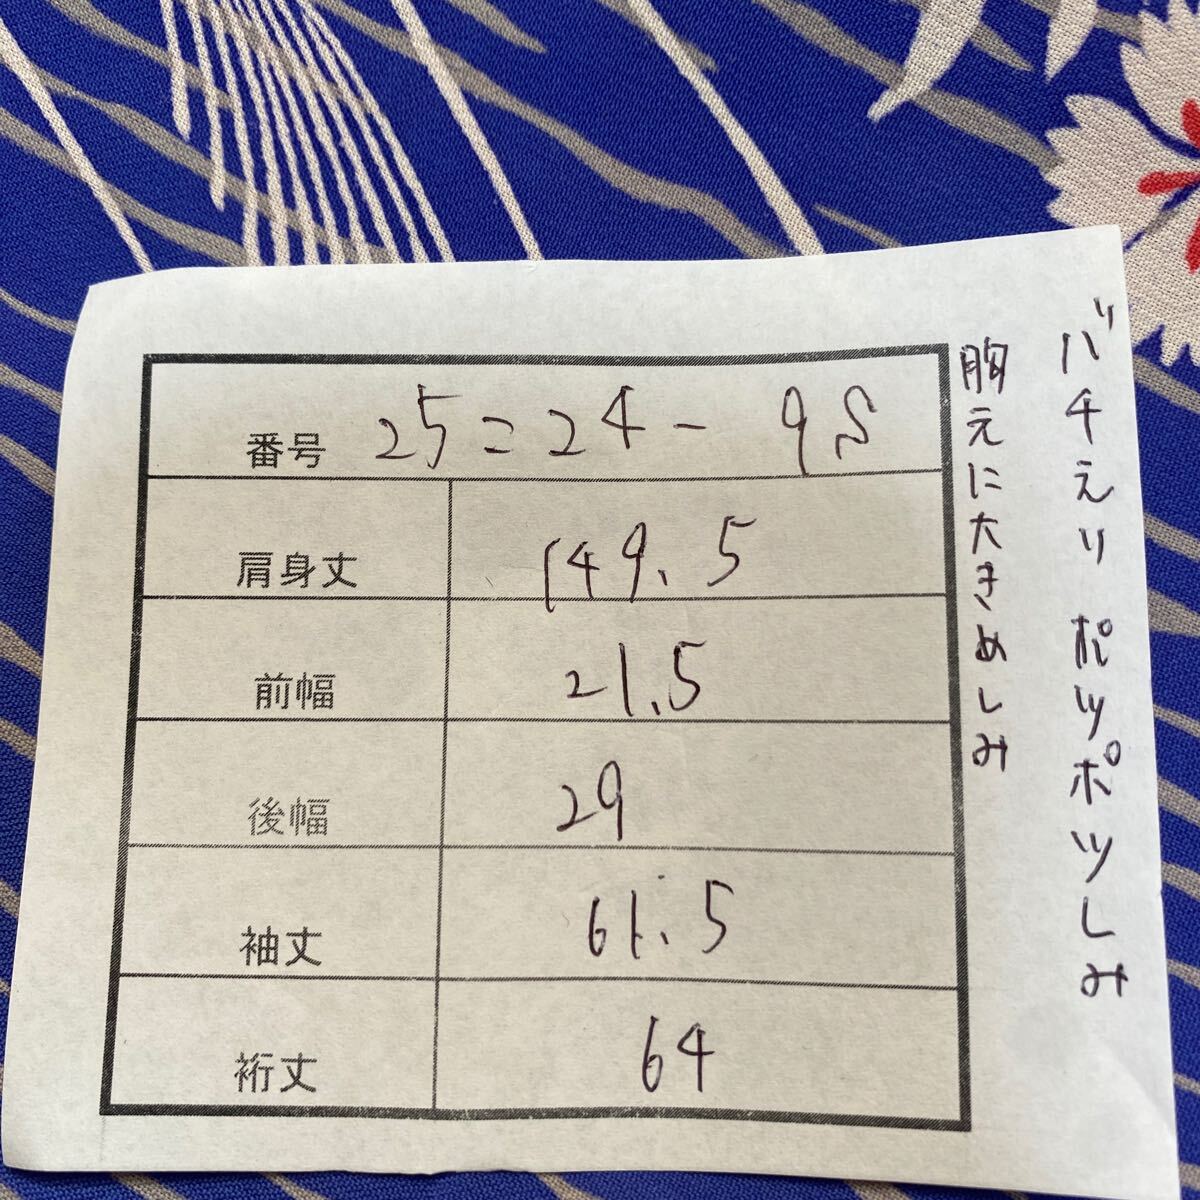 バチえり ポツポツしみ
胸元に大きめしみ
番号 25=24-9S
肩身丈 149.5
前幅 21.5
後幅 29
袖丈 61.5
裄丈 64